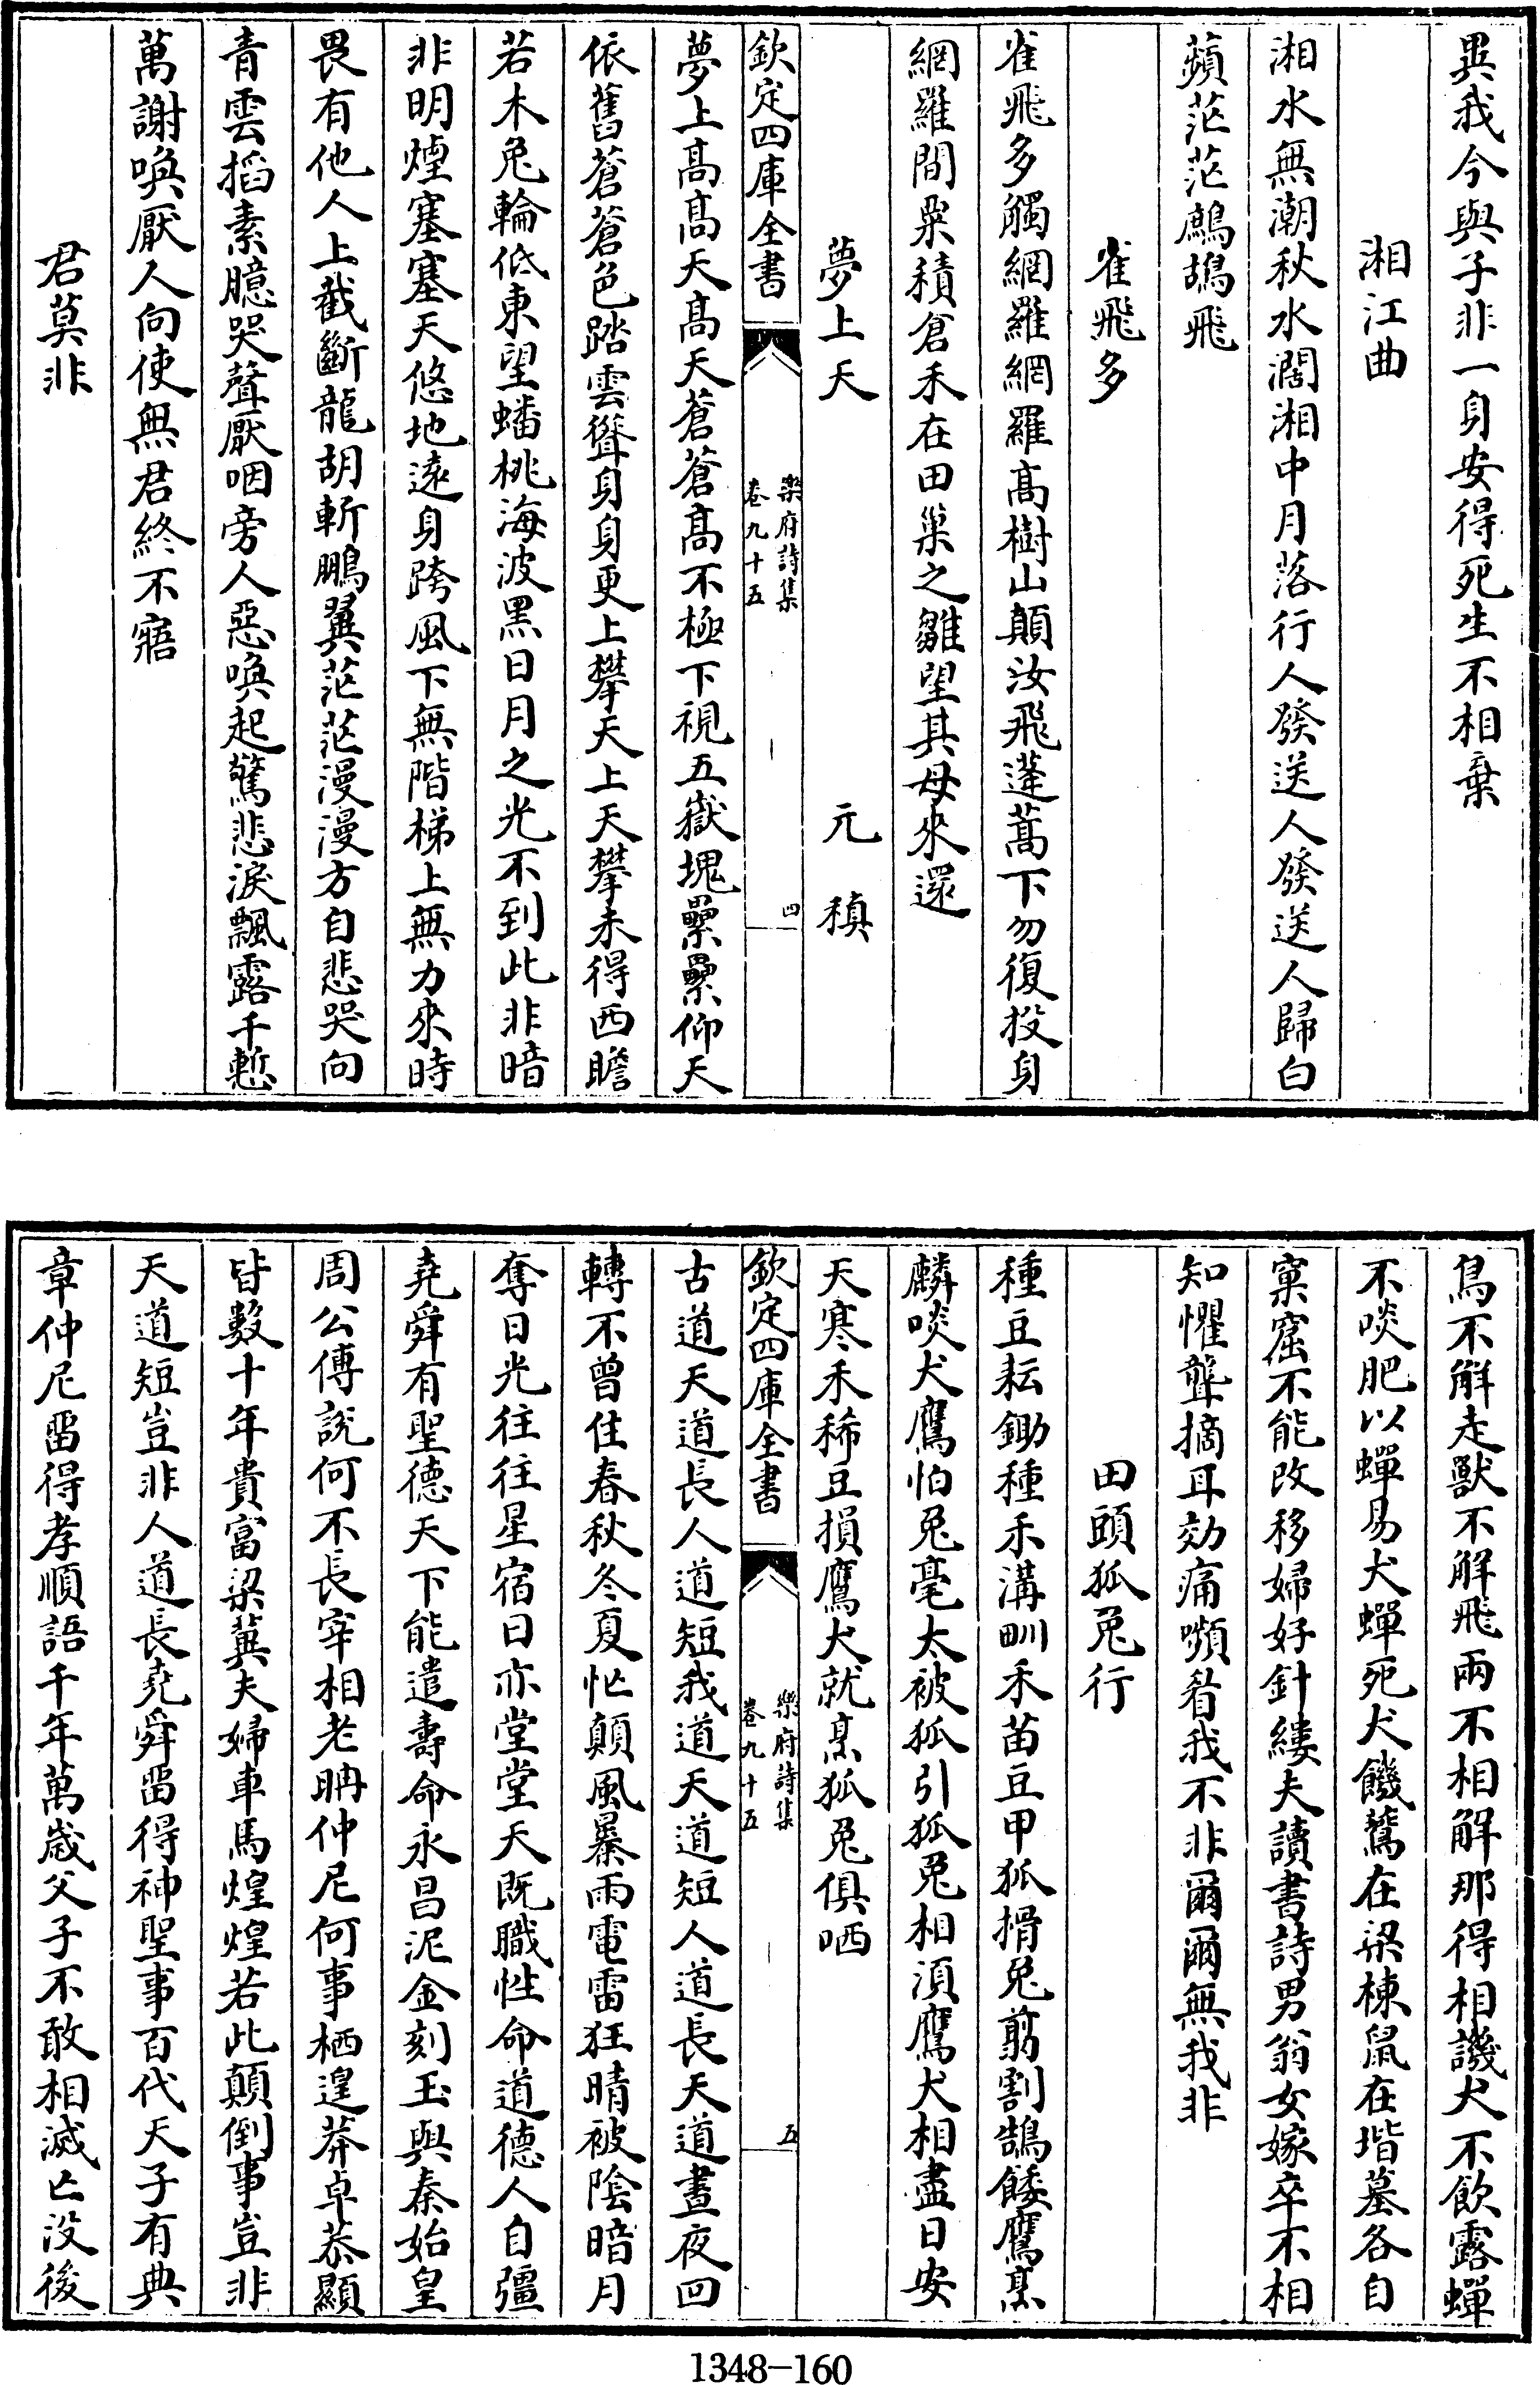 異我今與子非一身安得死生不相棄
湘江曲
湘水無潮秋水濶湘中月落行人發送人發送人歸白
蘋茫茫鷓鴣飛
雀飛多
雀飛多觸網羅網羅高樹山顛汝飛蓬蒿下勿復投身
網羅間粟積倉禾在田巢之雛望其母來還
夢上天 元稹
欽定四庫全書 樂府詩集 卷九十五 四
夢上高高天高天蒼蒼高不極下視五嶽塊纍纍仰天
依舊蒼蒼色踏雲聳身身更上攀天上天攀未得西瞻
若木兔輪低東望蟠桃海波黑日月之光不到此非暗
非明煙塞塞天悠地遠身跨風下無階梯上無力來時
畏有他人上截斷龍胡斬鵬翼茫茫漫漫方自悲哭向
青雲搯素臆哭聲厭咽旁人惡喚起驚悲淚飄露千慙
萬謝喚厭人向使無君終不寤
君莫非
鳥不解走獸不解飛兩不相解那得相譏犬不飲露蟬
不啖肥以蟬易犬蟬死犬饑鷰在梁棟鼠在堦墓各自
窠窟不能改移婦好針縷夫讀書詩男翁女嫁卒不相
知懼聾摘耳効痛嚬眉我不非爾爾無我非
田頭狐兔行
種豆耘鋤種禾溝甽禾苗豆甲狐搰兔剪割鵠餧鷹烹
麟啖犬鷹怕兔毫太被狐引狐兔相須鷹犬相盡日安
天寒禾稀豆損鷹犬就烹狐兔俱哂
欽定四庫全書 樂府詩集 卷九十五 五
古道天道長人道短我道天道短人道長天道晝夜回
轉不曾住春秋冬夏忙顛風暴雨電雷狂晴被陰暗月
奪日光往往星宿日亦堂堂天既職性命道德人自彊
堯舜有聖德天下能遣壽命永昌泥金刻玉與秦始皇
周公傅說何不長宰相老聃仲尼何事栖遑莽卓恭顯
皆數十年貴富梁冀夫婦車馬煌煌若此顛倒事豈非
天道短豈非人道長堯舜留得神聖事百代天子有典
章仲尼留得孝順語千年萬歲父子不敢相滅亡沒後
1348-160